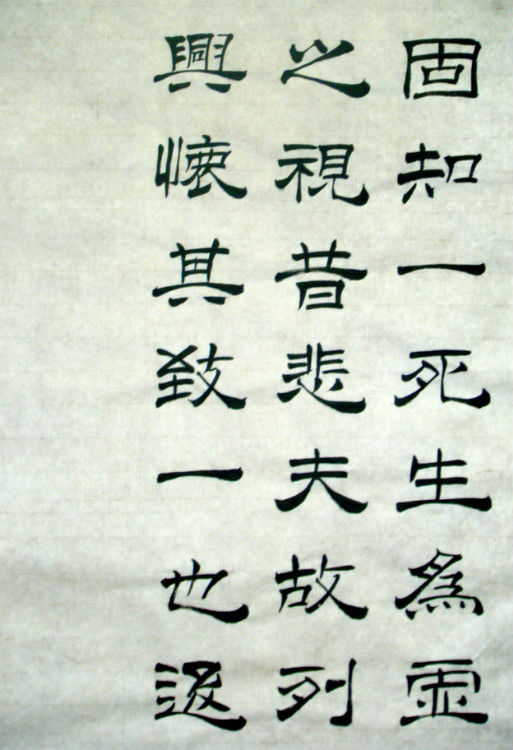 固知一死生爲虛
之視昔悲夫故列
興懷其致一也